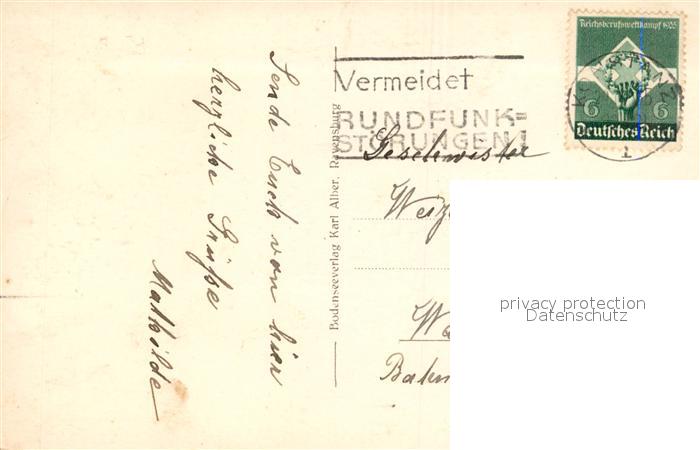 Sende Euch von hier
herzliche Grüße
Mathilde
Bodenseeverlag Karl Alber, Ravensburg
Vermeidet
RUNDFUNK=
STÖRUNGEN!
Reichsberufswettkampf 1935
6 6
Deutsches Reich
1
Geschwister
privacy protection
Datenschutz